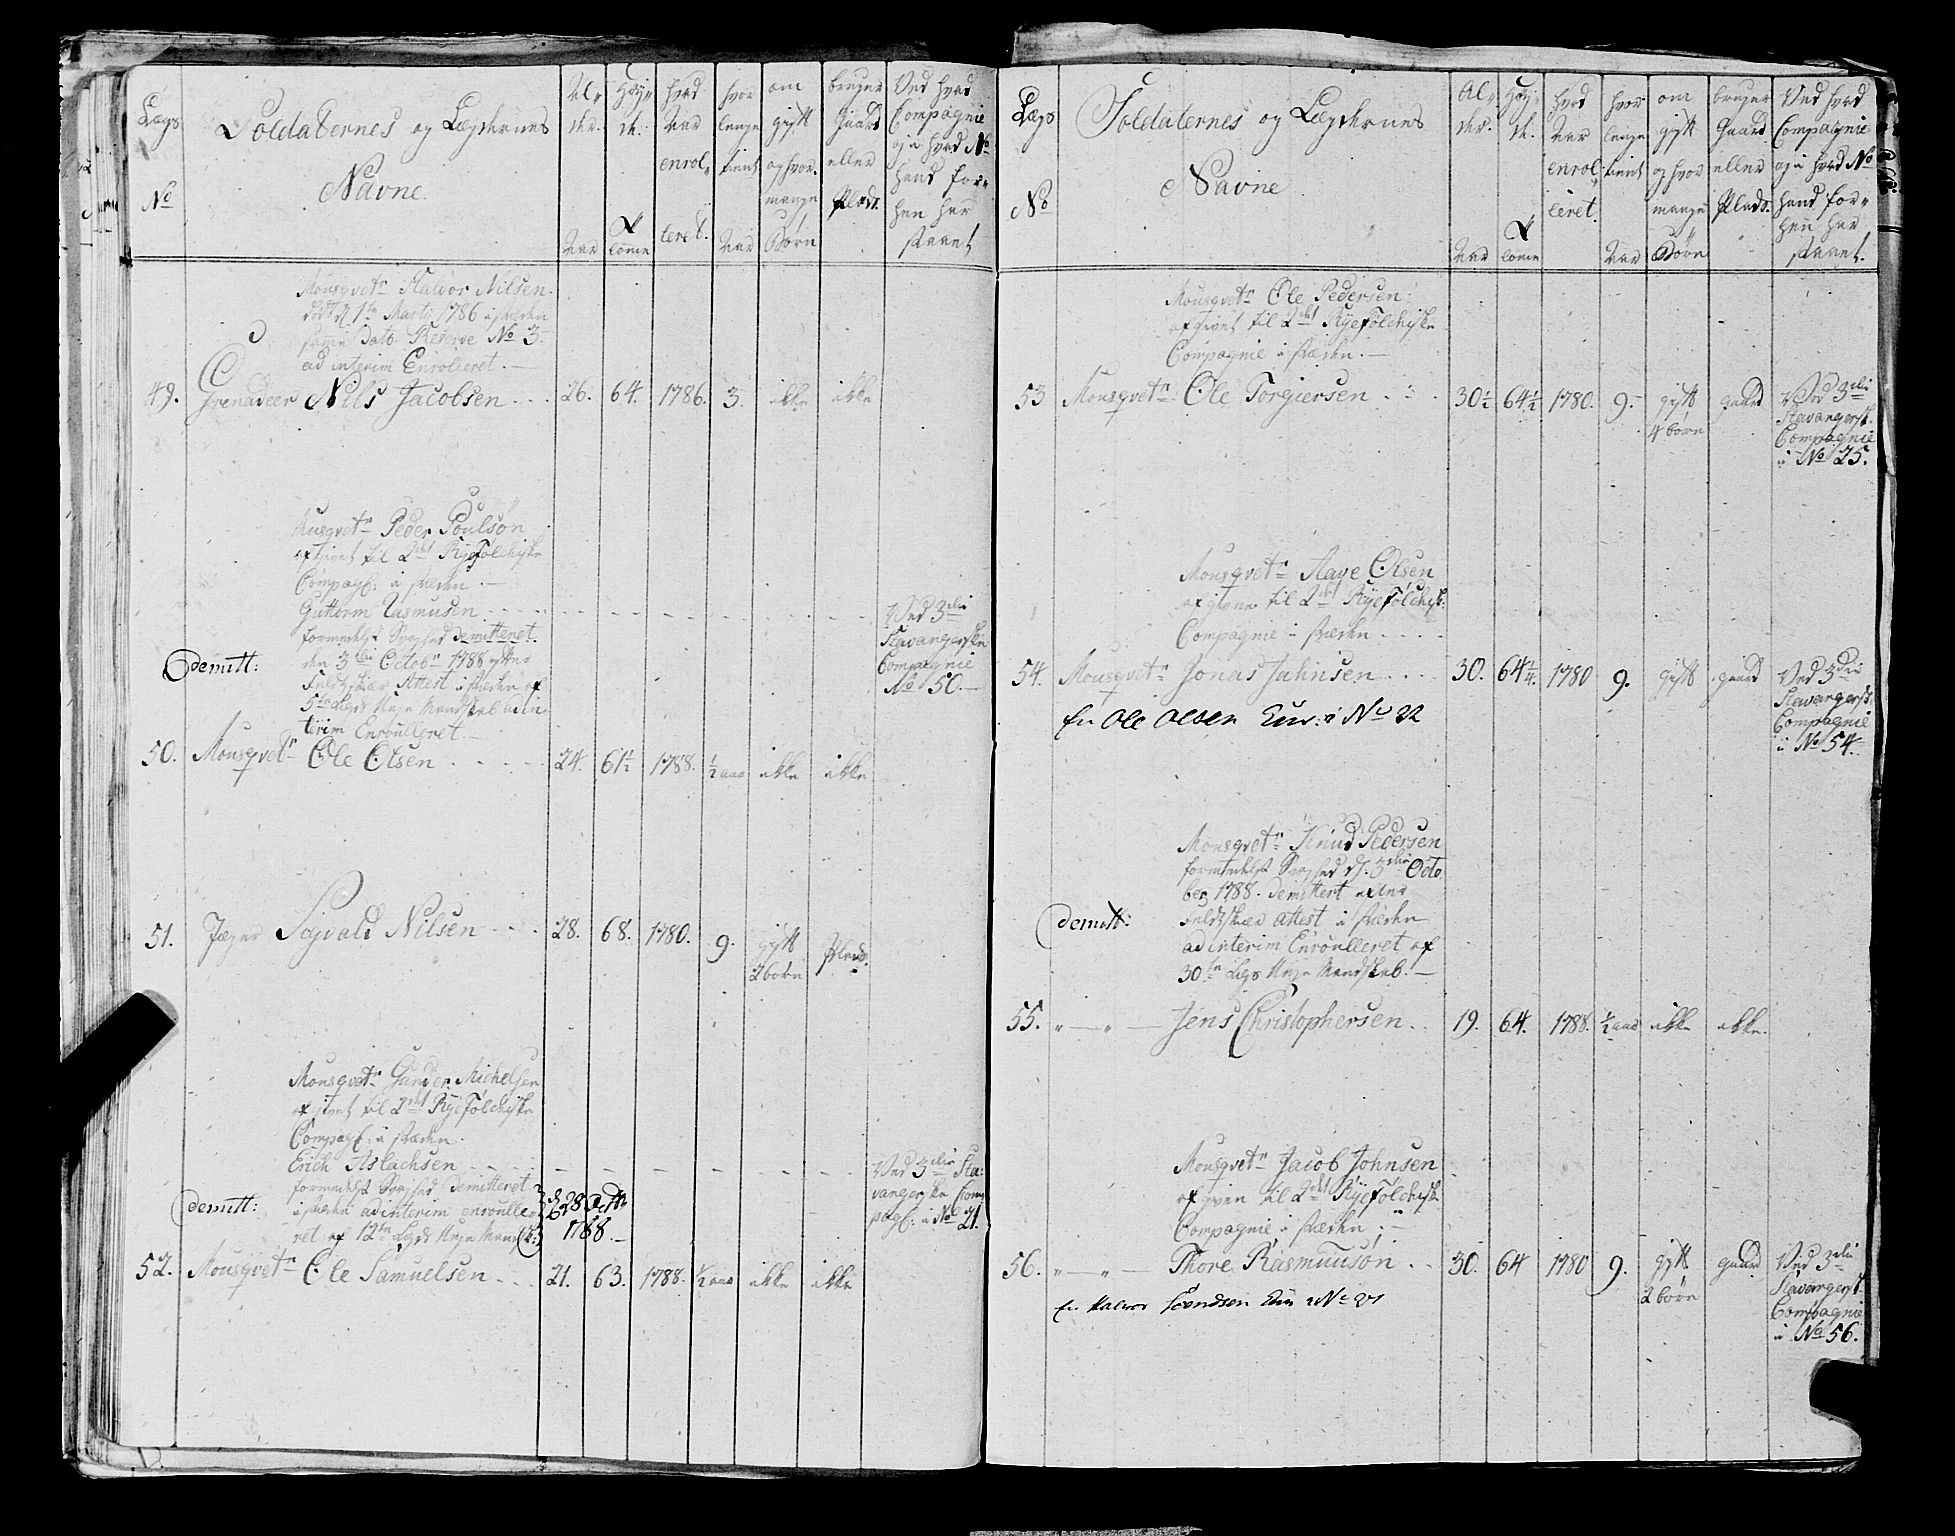 Lægs
No
Soldaternes og Lægdernes
Navne.
Al-
der.
Aar
Høy-
de.
tomme
hvad
Aar
enrol-
leret.
hvor
lenge
tient
Aar
om
gift
og hvor
mange
Børn
bruger
Gaard
eller
Plads.
Ved hvad
Compagnie
og i hvad No
hand for-
hen har
staaet
Mousqvetr Halvor Nilsen
død d. 1te Marti 1786 i stæden
samme Dato Reserve No 3
ad interim Enrolleret.
49. Grenadeer Nils Jacobsen 26. 64. 1786. 3. ikke ikke
Musqvetr Peder Poulsøn
afgivet til 2det Ryefølchiske
Compag: i stæden.
Guttorm Rasmusen
formedelst Svaghed demitteret
demitt: den 3die Octobr 1788 efter
Feldskiær Attest i stæden af
5te Legds Unge Mandskab ad in
terim Enroulleret.
Ved 3die
Stavangerske
Compagnie
No 50.
50. Mousqvetr Ole Olsen 24. 61½ 1788. ½ aar ikke ikke
51. Jæger Sigvald Nilsen 28. 68. 1780. 9. gift Plads.
2 børn
Mousqvetr Gunder Michelsen
afgivet til 2det Ryefølchiske
Compag: i stæden.
Erich Aslachsen
formedelst Svaghed demitteret
demitt: i stæden ad interim enroulle
ret af 12te Legds Unge Mandsk:
d. 28 Octbr
1788.
Ved 3die Sta-
vangerske Com
pag: i No 21.
52. Mousqvetr Ole Samuelsen 21. 63. 1788. ½ aar ikke ikke
Lægs
No
Soldaternes og Lægdernes
Navne
Al-
der.
Aar
Høy-
de.
tomme
hvad
Aar
enrol-
leret.
hvor
lenge
tient
Aar
om
gift
og hvor
mange
Børn
bruger
Gaard
eller
Plads.
Ved hvad
Compagnie
og i hvad No
hand for-
hen har
staaet.
Mousqvetr Ole Pedersen
afgivet til 2det Ryefølchiske
Compagnie i stæden.
53 Mousqvetr Ole Torgiersen 30½ 64½ 1780. 9. gift gaard Ved 3die
4 børn Stavangersk.
Compagnie
i No 25.
Mousqvetr Aave Olsen
afgivne til 2det Ryefølchisk:
Compagnie i stæden
54. Mousqvetr Jonas Jahnsen 30. 64¼ 1780 9. gift gaard Ved 3die
Stavangersk
Compagnie
i No 54.
fra Ole Olsen Enr: i No 22
Mousqvetr Knud Pedersen
formedelst Svaghed d. 3die Octo
ber 1788. demittert efter
demitt: Feldskiær attest i stæden
ad interim Enroulleret af
30te Legs Unge Mandskab.
55. " — " — Jens Christophersen 19. 64. 1788. ½ aar ikke ikke.
Mousqvetr Jacob Johnsen
afgiven til 2det Ryefølchisk:
Compagnie i stæden.
56. " — " — Thore Rasmuusøn 30. 64 1780 9. gift gaard Ved 3die
2 børn Stavangersk.
Compagnie
i No 56.
fra Halvor Svendsen Enr i No 27